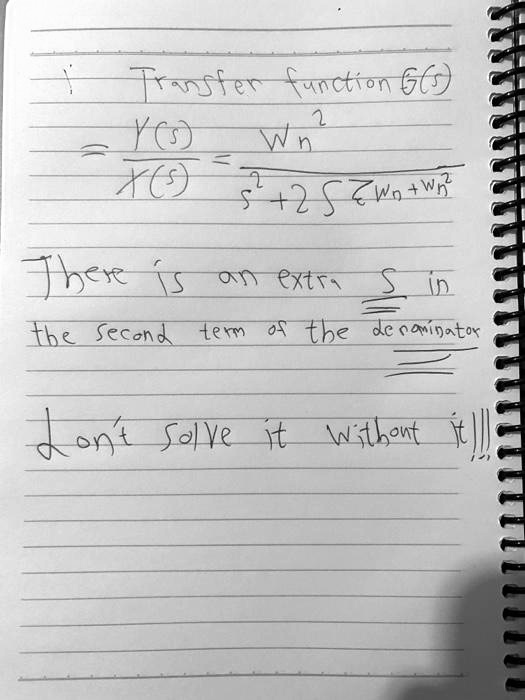 Transfer function G(s)
= Y(s) / X(s) = Wn² / s² + 2 S ξ Wn + Wn²
There is an extra S in
the second term of the denominator
don't solve it without it!!!